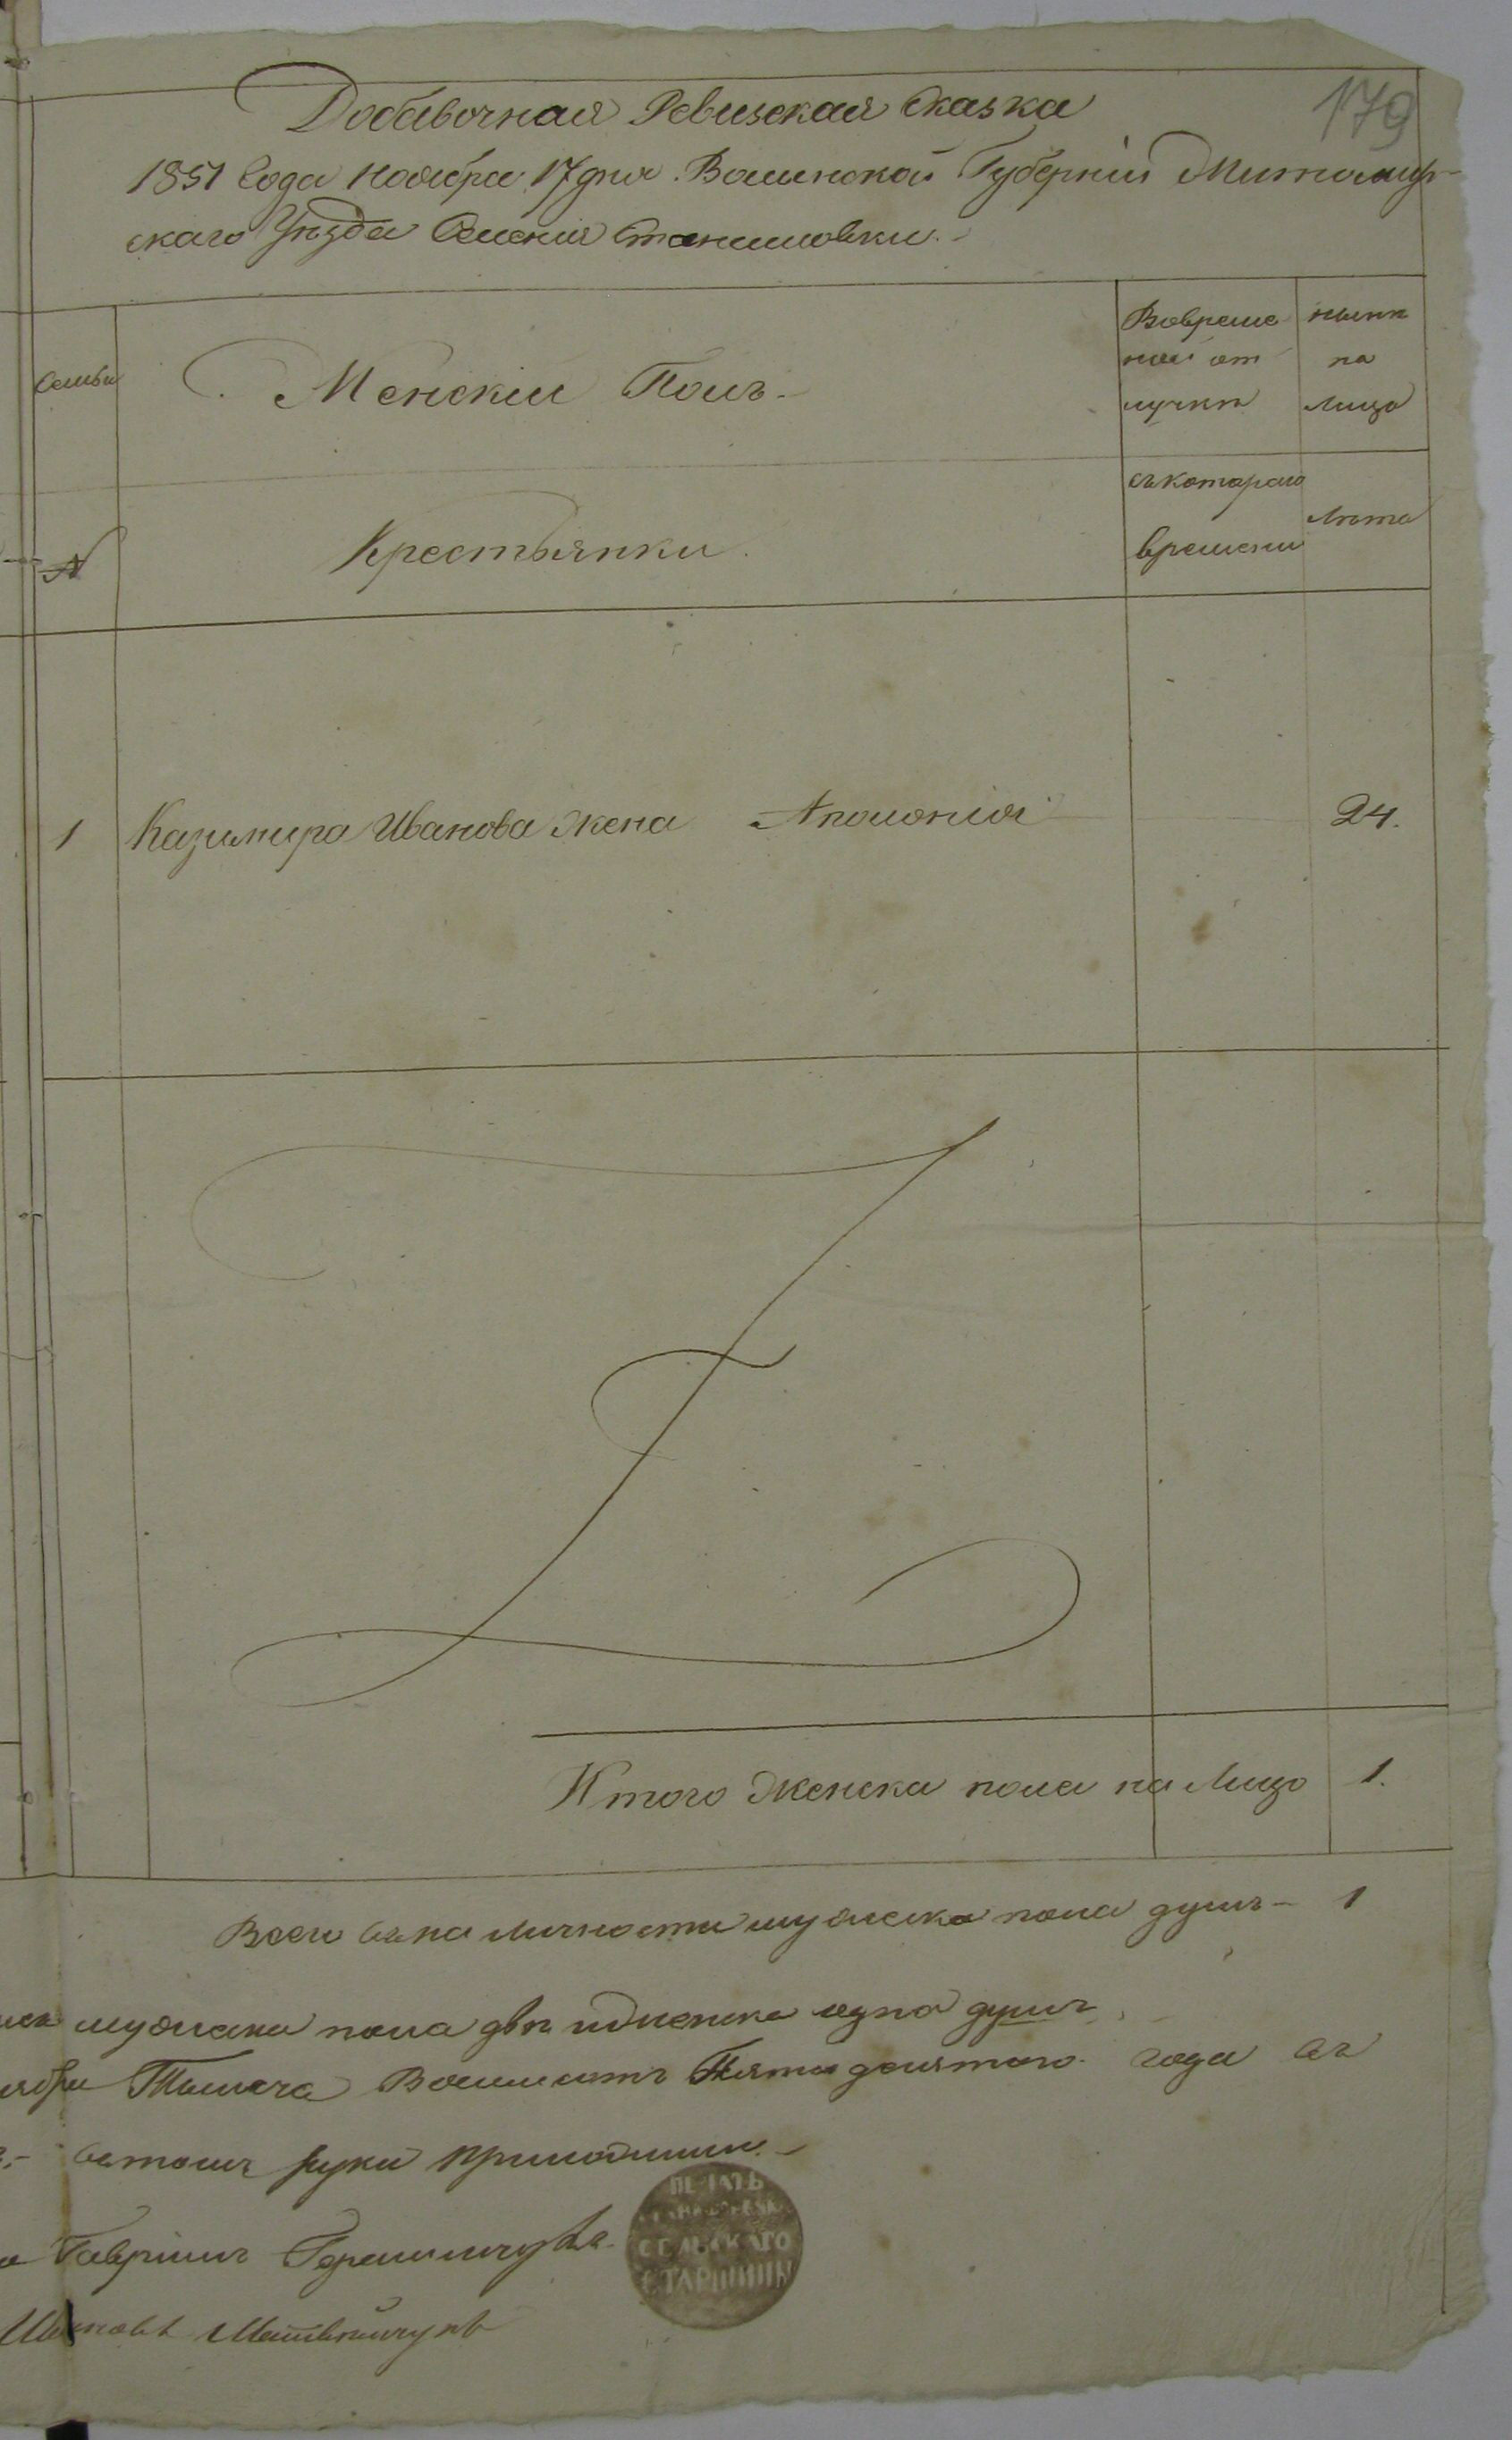 179
Добавочная Ревизская Сказка
1851 Года Ноября 17 дня Волинской Губерніи Житомир-
скаго Уѣзда Селенія Станишовки.
Семьи
Женскій Полъ.
Вовреме
ной от
лучкѣ
нынѣ
на
лицо
№
Крестьянки.
съ котораго
времени
Лѣта
1 Казимира Иванова жена Аполонія 24.
Итого Женска пола на Лицо 1.
Всего въ наличности мужеска пола душъ - 1
мужеска пола двѣ и женска одна душъ
Тысяча Восимсотъ Пятидесятого года въ
въ томъ руки приложили.
Гавріилъ
ПЕЧАТЬ
СЕЛЬСКАГО
СТАРШИНЫ